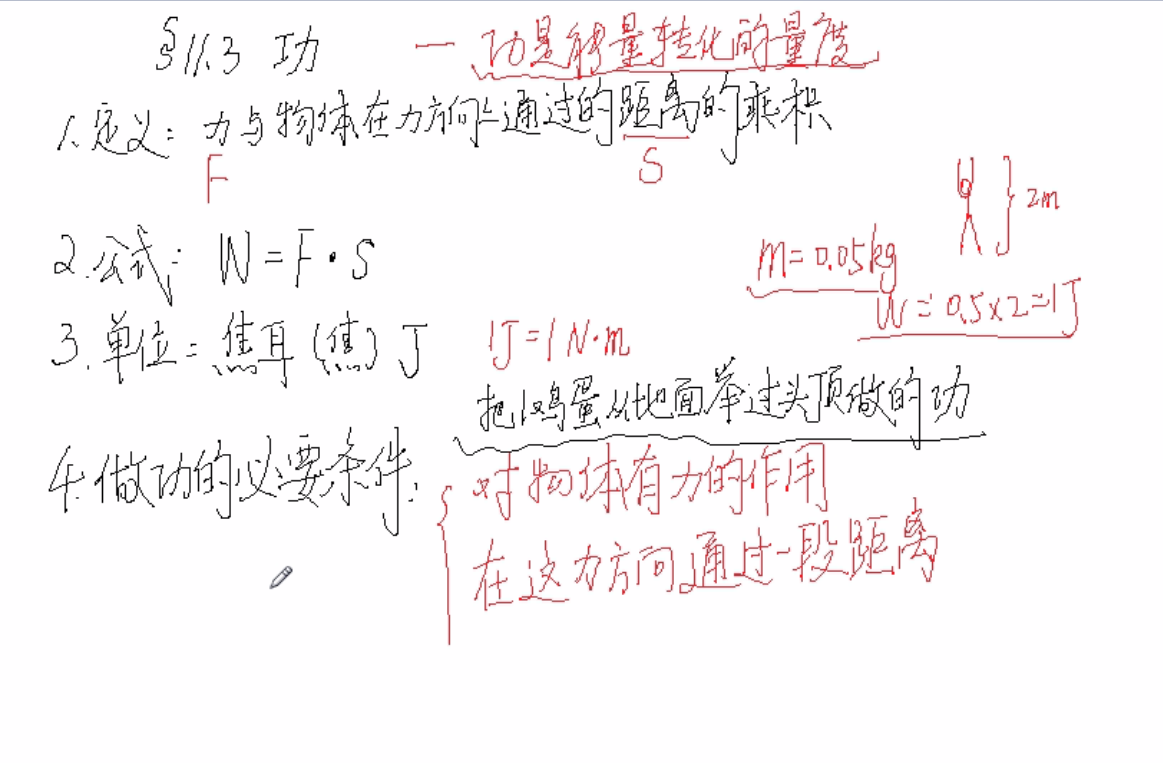 §11.3 功 — 功是能量转化的量度
1.定义: 力与物体在力方向上通过的距离的乘积
F S
2m
2.公式: W=F·S
m=0.05kg
W=0.5×2=1J
3.单位: 焦耳(焦) J 1J=1N·m
把1只鸡蛋从地面举过头顶做的功
4.做功的必要条件:
对物体有力的作用
在这力方向通过一段距离